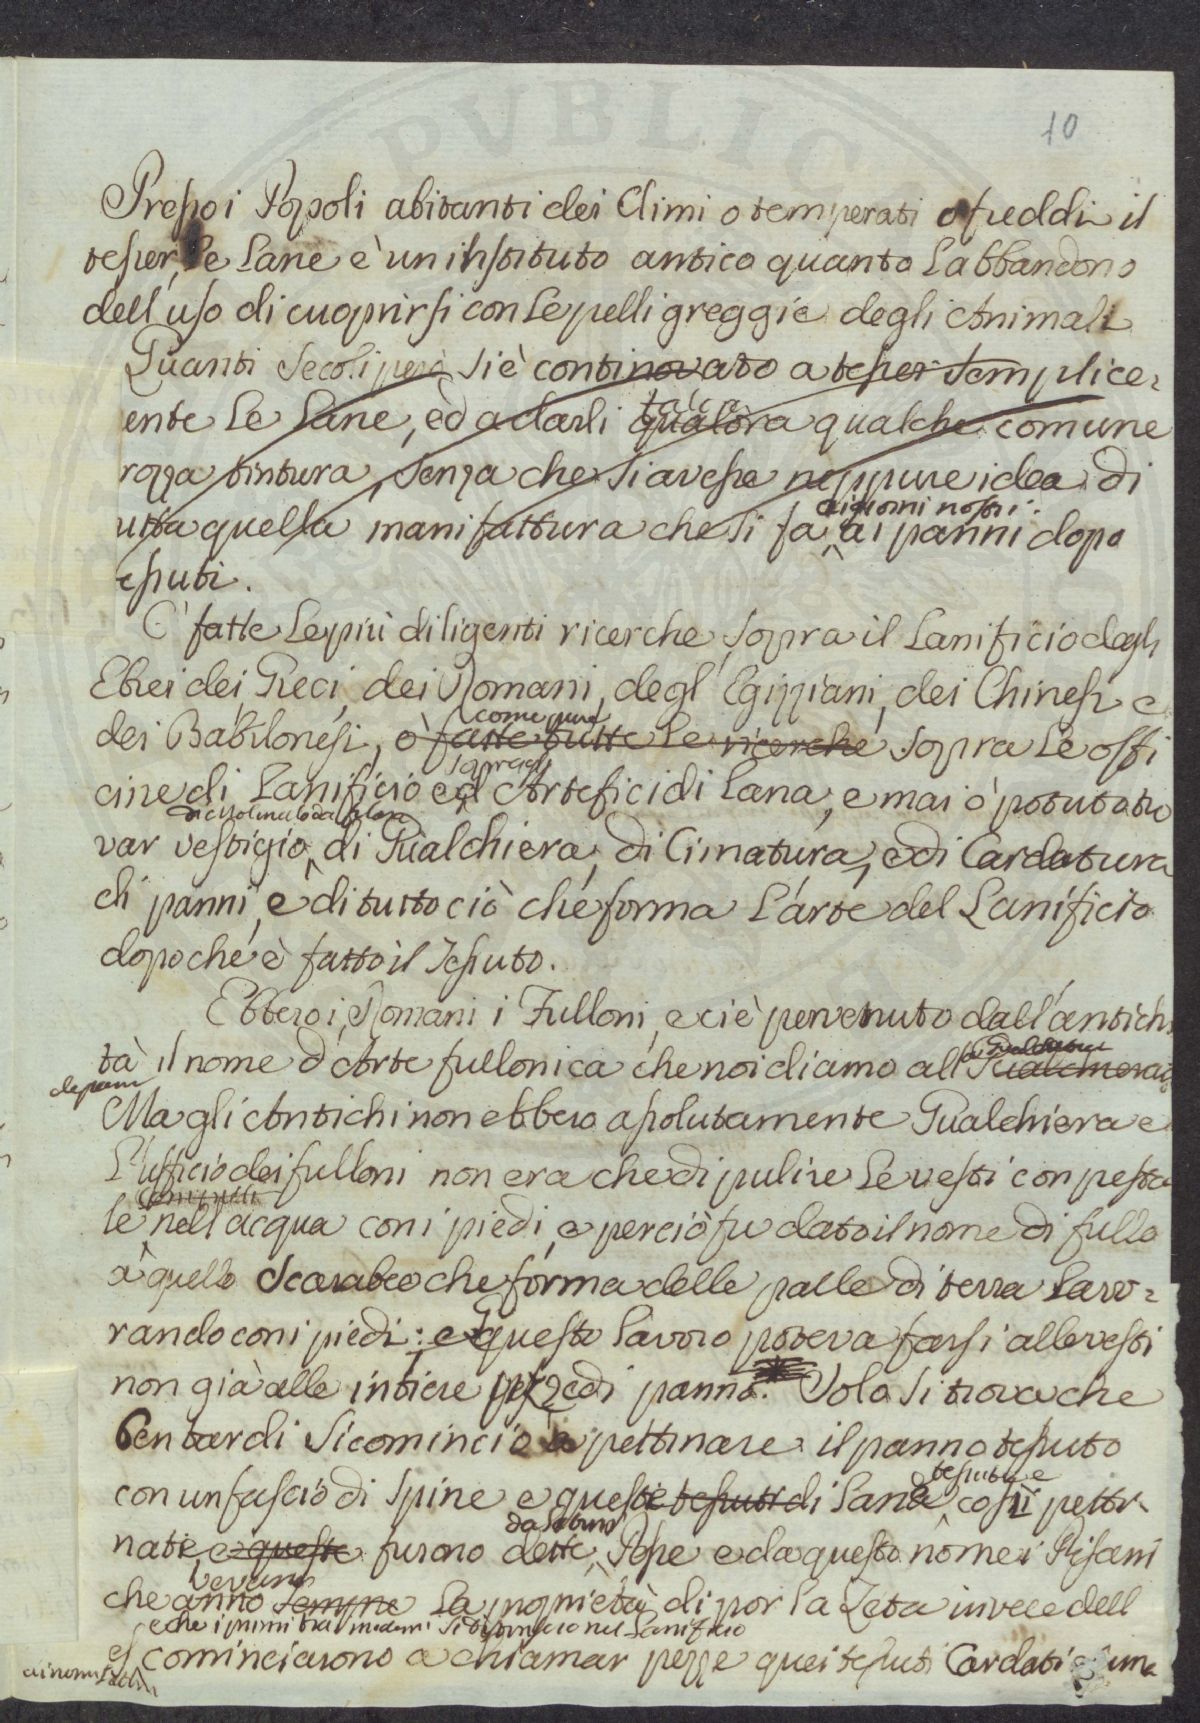 PVBLIC
10
Presso i Popoli abitanti dei Climi o temperati o freddi il
tesser le Lane è un instituto antico quanto l'abbandono
dell'uso di cuoprirsi con le pelli greggie degli Animali
Quanti Secoli però si è continovato a tesser semplice=
ente le Lane, ed a darli qualora qualche comune
rozza tintura, senza che si avesse neppure idea di
ai giorni nostri
utta quella manifattura che si fa ai panni dopo
essuti.
O' fatte le più diligenti ricerche sopra il Lanificio degli
Ebrei dei Greci, dei Romani, degl'Egizziani, dei Chinesi e
come pure
dei Babilonesi, ò fatte tutte le ricerche sopra le offi
sopra gli
cine di Lanificio ed Artefici di Lana, e mai ò potuto tro
var vestigio, di Gualchiera, di Cimatura, e di Cardatura
di panni, e di tutto ciò che forma l'arte del Lanificio
dopo che è fatto il Tessuto.
Ebbero i Romani i Fulloni, e ci è pervenuto dall'antichi
tà il nome d'Arte fullonica che noi diamo alla Gualchiera
Ma gli Antichi non ebbero assolutamente Gualchiera e
l'ufficio dei fulloni non era che di pulire le vesti con pesta
le nell'acqua con i piedi, e perciò fu dato il nome di fullo
a quello Scarabeo che forma delle palle di terra lavo=
rando con i piedi: e questo lavoro poteva farsi alle vesti
non già alle intiere pezze di panno. Solo si trova che
ben tardi si cominciò a pettinare il panno tessuto
con un fascio di spine e queste tessuti di lana
tessute e
così petti
nate, e queste furono dette
da Latini
Pexe e da questo nome i Pisani
che anno sempre la proprietà di por la Zeta invece dell
e che i primi tra moderni si distinsero nel Lanificio
es cominciarono a chiamar pezze quei tessuti Cardati